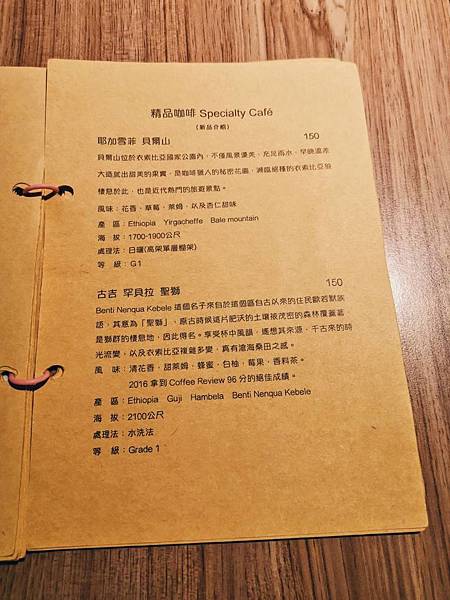 精品咖啡 Specialty Café
(新品介紹)
耶加雪菲 貝爾山 150
貝爾山位於衣索比亞國家公園內，不僅風景優美、充足雨水、早晚溫差
大造就出甜美的果實，是咖啡獵人的秘密花園，瀕臨絕種的衣索比亞狼
棲息於此，也是近代熱門的旅遊景點。
風味：花香、草莓、萊姆、以及杏仁甜味
產 區：Ethiopia Yirgacheffe Bale mountain
海 拔：1700-1900公尺
處理法：日曬(高架單層棚架)
等 級：G1
古吉 罕貝拉 聖獅 150
Benti Nenqua Kebele 這個名子來自於這個區自古以來的住民歐若默族
語，其意為「聖獅」，原古時候這片肥沃的土壤被茂密的森林覆蓋著
是獅群的棲息地，因此得名。享受杯中風韻，遙想其來源，千古來的時
光流變，以及衣索比亞複雜多變，真有滄海桑田之感。
風 味：清花香、甜萊姆、蜂蜜、白柚、莓果、香料茶。
2016 拿到 Coffee Review 96 分的絕佳成績。
產 區：Ethiopia Guji Hambela Benti Nenqua Kebele
海 拔：2100公尺
處理法：水洗法
等 級：Grade 1